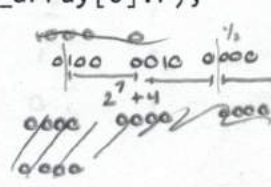 _array[0].r);
0000 0
1/2
0100 0010 0000
2^7 + 4
0000 0000 0000
0000